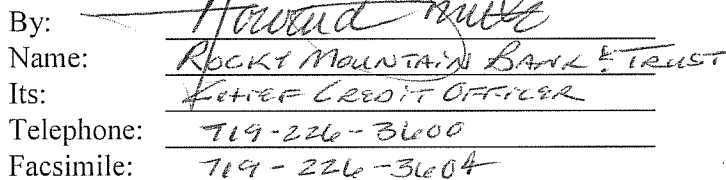 By: Howard
Name: ROCKY MOUNTAIN BANK & TRUST
Its: CHIEF CREDIT OFFICER
Telephone: 719-226-3600
Facsimile: 719-226-3604